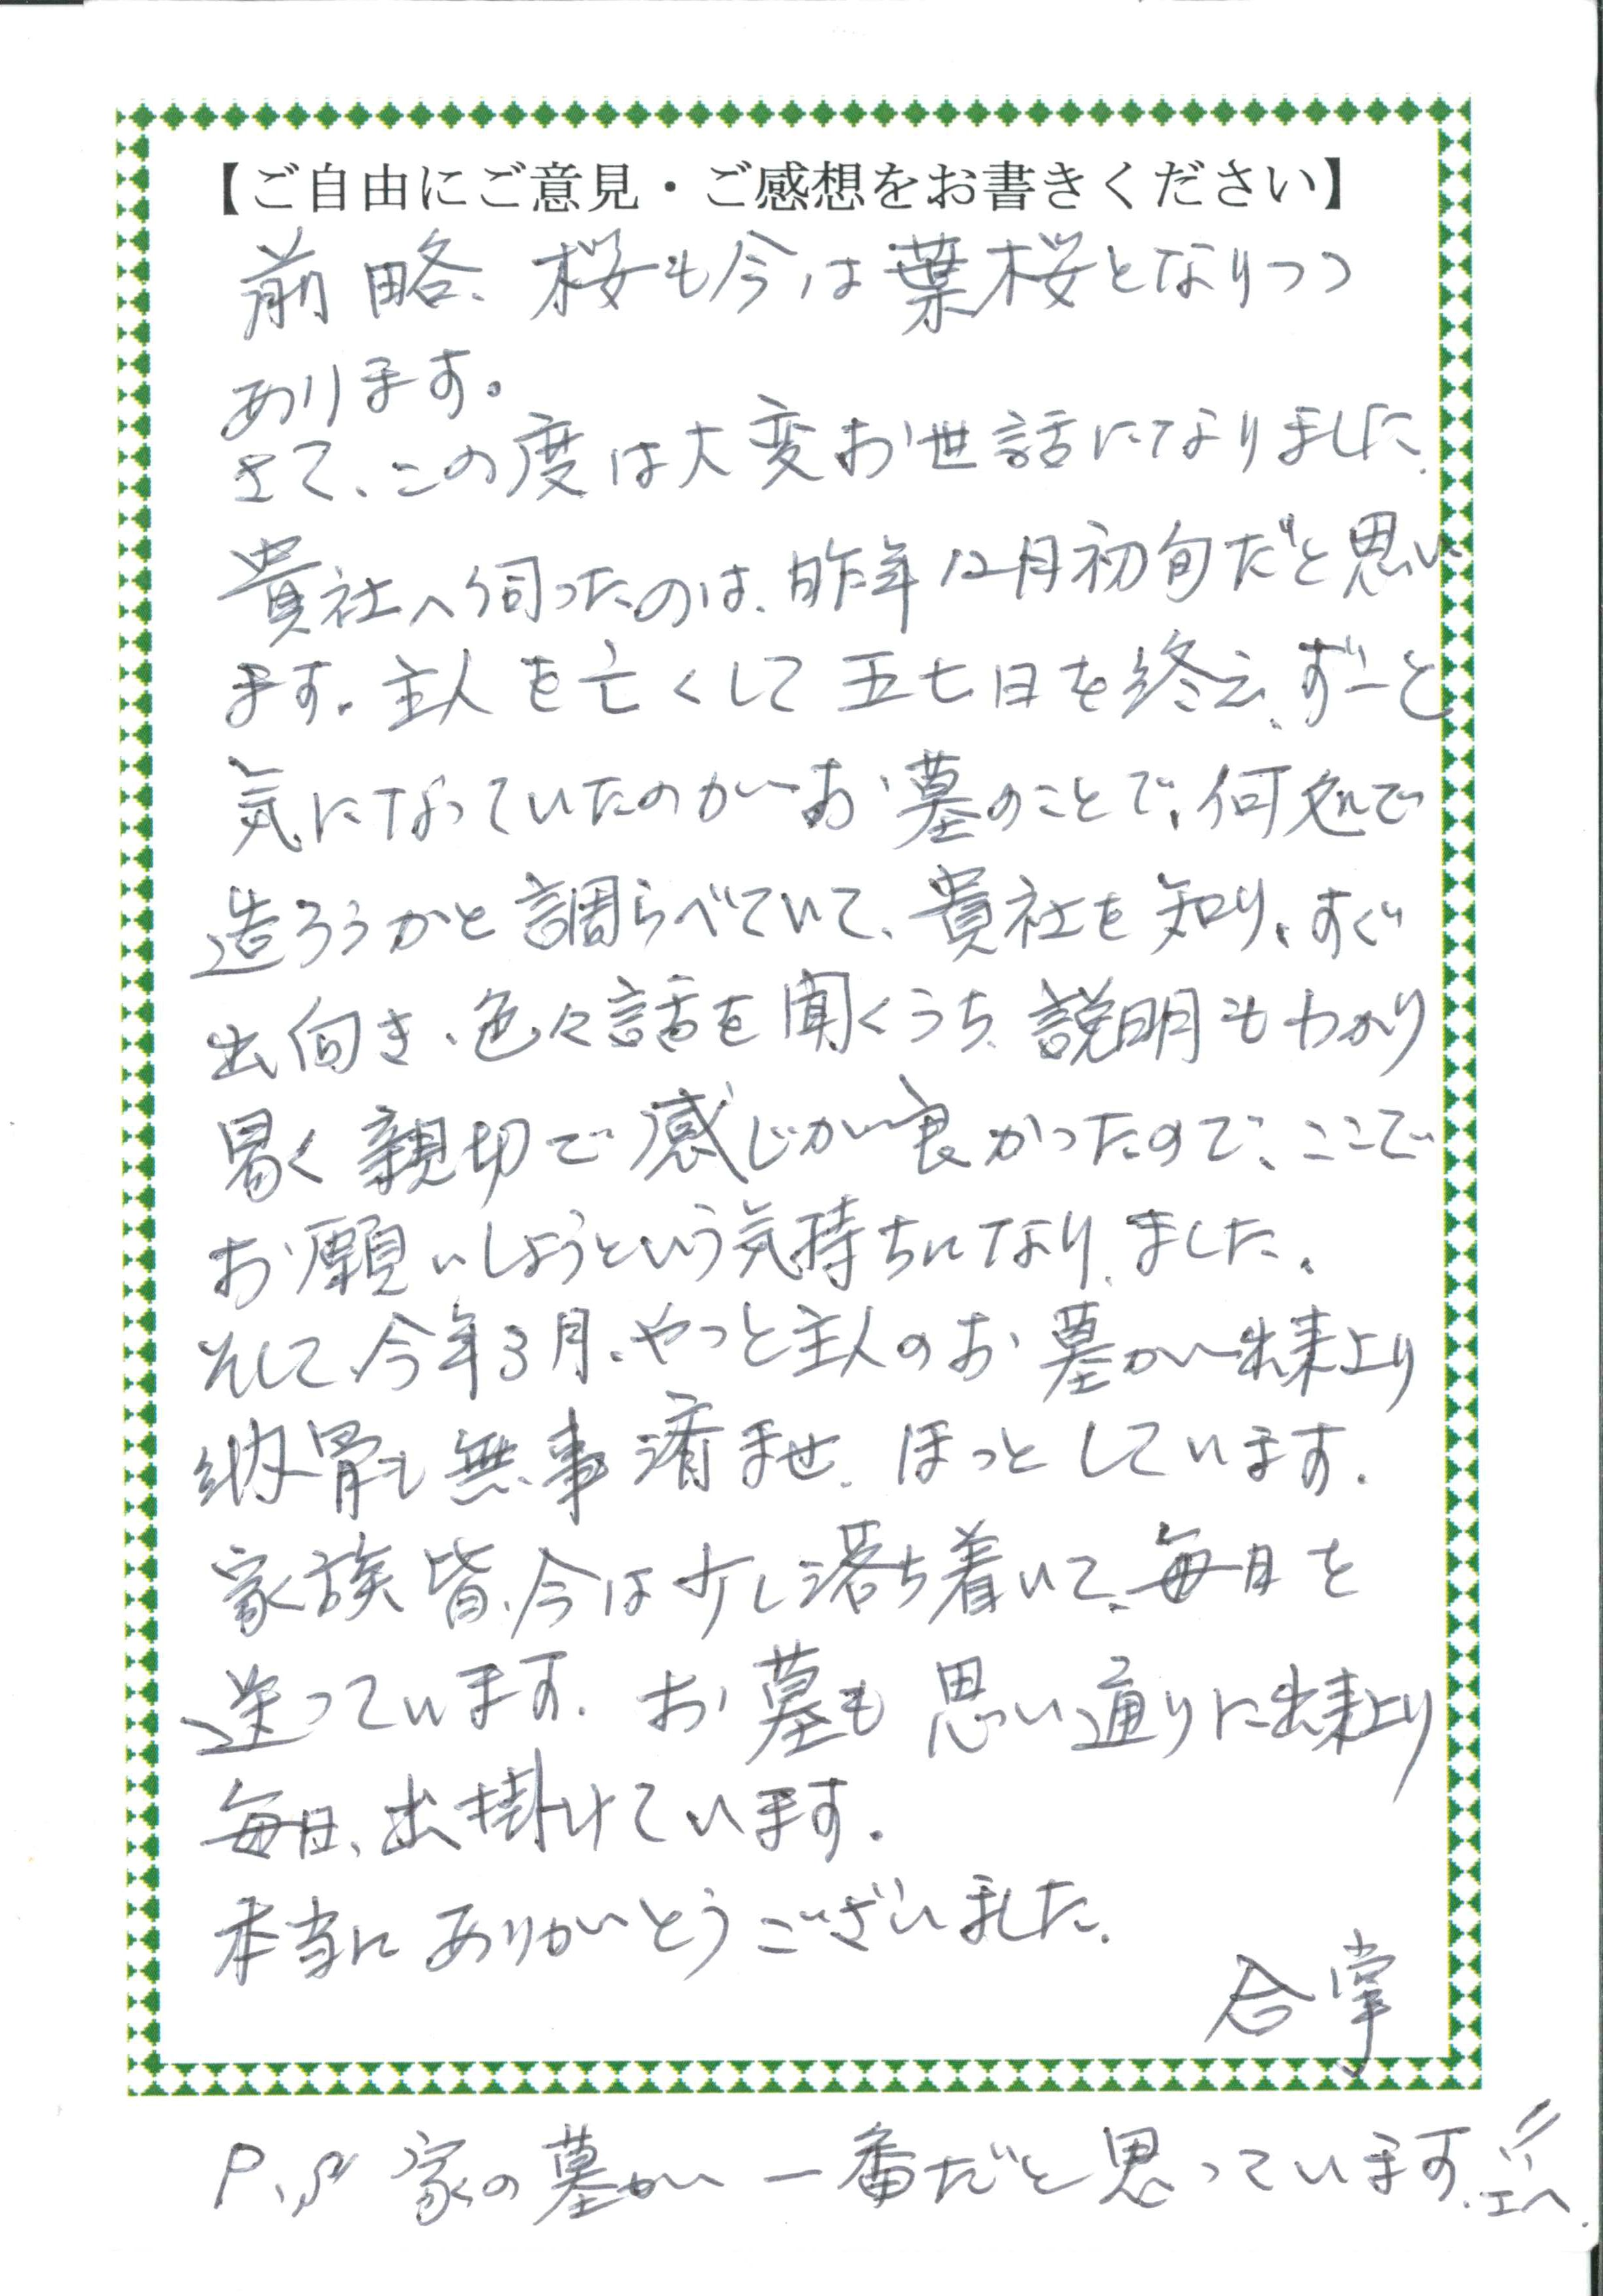 【ご自由にご意見・ご感想をお書きください】
前略、桜も今は葉桜となりつつ
あります。
さて、この度は大変お世話になりました。
貴社へ伺ったのは、昨年12月初旬だと思い
ます。主人を亡くして五七日を終え、ずーと
気になっていたのがお墓のことで、何処で
造ろうかと調らべていて、貴社を知り、すぐ
出向き、色々話を聞くうち、説明もわかり
易く親切で感じが良かったので、ここで
お願いしようという気持ちになりました。
そして、今年3月、やっと主人のお墓が出来上り
納骨も無事済ませ、ほっとしています。
家族皆、今は少し落ち着いて、毎日を
送っています。お墓も思い通りに出来上り
毎日、出掛けています。
本当にありがとうございました。
合掌
P.S 家の墓が一番だと思っています。エヘ